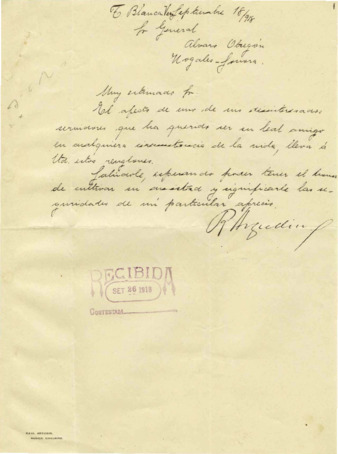 T. Blanca Septiembre 18/918
Sr General
Alvaro Obregón
Nogales-Sonora.
Muy estimado Sr.
El afecto de uno de sus desinteresados
servidores que ha querido ser su leal amigo
en cualquiera circunstancia de la vida, lleva á
Ud estos renglones.
Salúdole, esperando poder tener el honor
de cultivar su amistad y significarle las se-
guridades de mi particular aprecio.
RECIBIDA
SET 26 1918
CONTESTADA